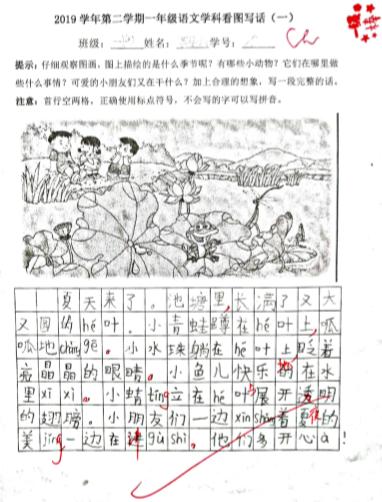 2019 学年第二学期一年级语文学科看图写话（一）
班级： 姓名： 学号：
提示：仔细观察图画，图上描绘的是什么季节呢？有哪些小动物？它们在哪里做
些什么事情？可爱的小朋友们又在干什么？加上合理的想象，写一段完整的话。
注意：首行空两格，正确使用标点符号，不会写的字可以写拼音。
夏天来了。池塘里，长满了又大
又圆的hé叶。小青蛙蹲在hé叶上，呱
呱地chàng gē。小水珠躺在hé叶上，眨着
亮晶晶的眼睛。小鱼儿快乐地在水
里xī xì。小蜻tíng立在hé叶上展开透明
的翅膀。小朋友们一边xīn shǎng着夏夜的
美jǐng一边在讲gù shì。他们多开心à！